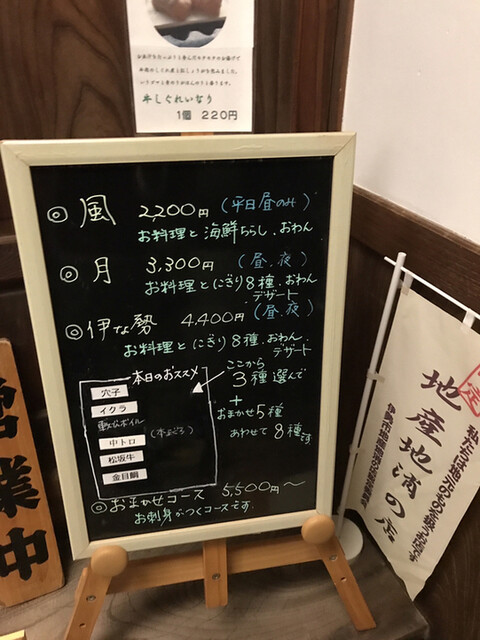 牛しぐれいなり
1個 220円
◎風 2,200円 (平日昼のみ)
お料理と海鮮ちらし、おわん
◎月 3,300円 (昼、夜)
お料理とにぎり8種、おわん
デザート
◎伊な勢 4,400円 (昼、夜)
お料理とにぎり8種、おわん、
デザート
本日のおススメ
穴子
イクラ
車えびボイル
中トロ (本まぐろ)
松坂牛
金目鯛
ここから
3種選んで
+
おまかせ5種
あわせて8種です
◎おまかせコース 5,500円〜
お刺身がつくコースです。
営業中
地産地消の店